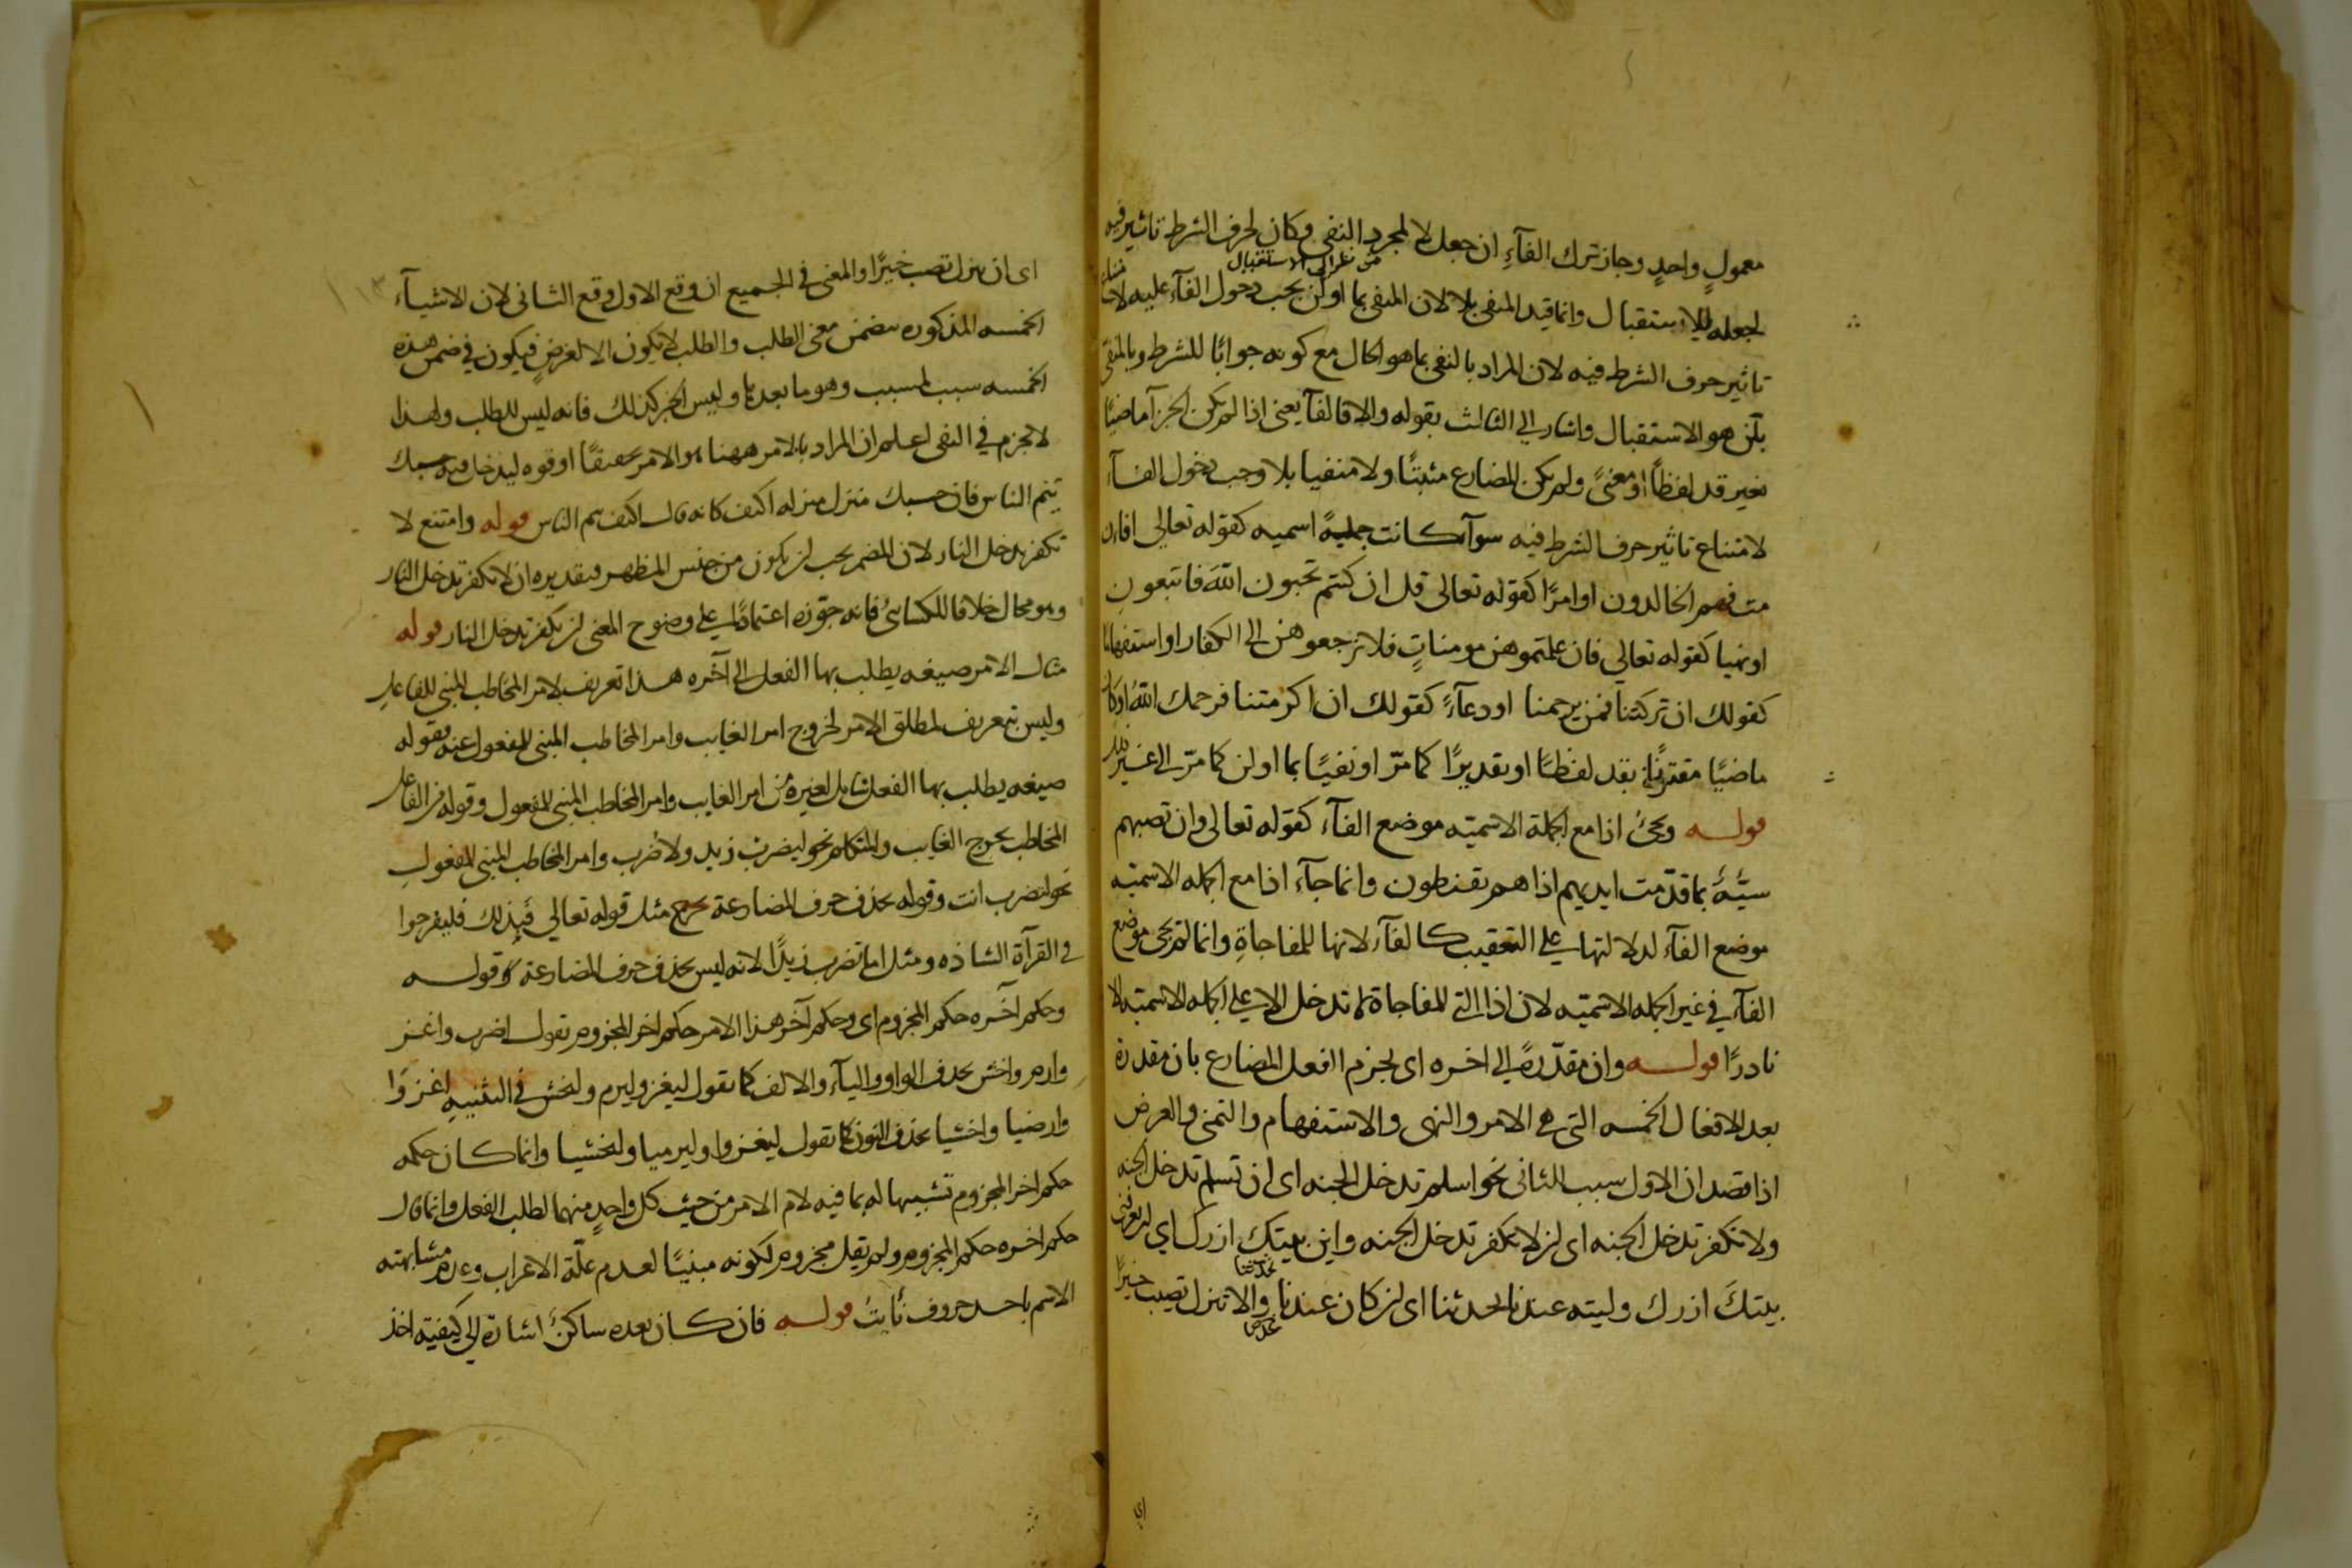 معمولٍ واحدٍ وجاز ترك الفآءِ ان جعل لا لمجرد النفى وكان لحرف الشرط تاثير فيه
من نظر الى الاستقبال
لجعله للاستقبال وانما قيد المنفى بلا لان المنفى بما اولن يجب دخول الفآء عليه لامتناع
تاثير حرف الشرط فيه لان المراد بالنفى بما هو الحال مع كونه جوابًا للشرط وبالمنفى
بلن هو الاستقبال واشار الى الثالث بقوله والا فالفآ يعنى اذا لم يكن الجزآ ماضيًا
بغير قد لفظًا او معنىً ولم يكن المضارع مثبتًا ولا منفيا بلا وجب دخول الفآء
لامتناع تاثير حرف الشرط فيه سوآء كانت جملةً اسميه كقوله تعالى افاءن
مت فهم الخالدون او امرًا كقوله تعالى قل ان كنتم تحبون اللّه فاتبعون
او نهيا كقوله تعالى فان علمتموهن مومناتٍ فلا ترجعوهن الى الكفار او استفهاما
كقولك ان تركتنا فمن يرحمنا او دعآءً كقولك ان اكرمتنا فرحمك اللّه او كان
ماضيًا مقترنًا بقد لفظًا او تقديرًا كما مرّ او نفيًا بما او لن كما مرّ الى غير ذلك
قولــه ويجئ اذا مع الجملة الاسميّه موضع الفآء كقوله تعالى وان تصبهم
سيّئةٌ بما قدّمت ايديهم اذا هم يقنطون وانما جآء اذا مع الجمله الاسميّه
موضع الفآء لدلالتها على التعقيب كالفآء لانها للمفاجاةِ وانما لم يجى موضع
الفآء فى غير الجمله الاسميّه لان اذا التى للمفاجاة لا تدخل الا على الجمله الاسميّه الا
نادرًا قولــه وان مقدّرةً الى اخره اى يجزم الفعل المضارع بان مقدرة
بعد الافعال الخمسه التى هى الامر والنهى والاستفهام والتمنى والعرض
اذا قصد ان الاول سبب الثانى نحو اسلم تدخل الجنه اى ان تسلم تدخل الجنه
ولا تكفر تدخل الجنه اى ان لا تكفر تدخل الجنه واين بيتك ازرك اى ان تعرفنى
بيتكَ ازرك وليته عندنا يحدثنا اى ان كان عندنا يحدثنا والا تنزل تصب خيرًا
عرض
اى
اى ان تنزل تصب خيرًا والمعنى فى الجميع ان وقع الاول وقع الثانى لان الاشيآء
الخمسه المذكوره متضمن معنى الطلب والطلب لا يكون الا لغرضٍ فيكون فى ضمن هذه
الخمسه سبب لمسبب وهو ما بعدها وليس الخبر كذلك فانه ليس للطلب ولهذا
لا تجزم فى النفى اعلم ان المراد بالامر ههنا هو الامر تحقيقًا او قوه ليدخل فيه حسبك
ينم الناس فان حسبك منزل منزله اكتف كانه قال اكتف ينم الناس قوله وامتنع لا
تكفر تدخل النار لان المضمر يجب ان يكون من جنس المظهر فتقديره ان لا تكفر تدخل النار
وهو محال خلافا للكسائىّ فانه جوّزه اعتمادًا على وضوح المعنى ان تكفر تدخل النار قوله
مثال الامر صيغه يطلب بها الفعل الى آخره هذا تعريف لامر المخاطب المبنى للفاعل
وليس بتعريف لمطلق الامر لخروج امر الغايب وامر المخاطب المبنى للمفعول عنه فقوله
صيغه يطلب بها الفعل شامل لغيره من امر الغايب وامر المخاطب المبنى للمفعول وقوله من الفاعل
المخاطب يخرج الغايب والمتكلم نحو ليضرب زيد ولاضرب وامر المخاطب المبنى للمفعول
نحو لتضرب انت وقوله بحذف حرف المضارعة يخرج مثل قوله تعالى فبذلك فليفرحوا
فى القرآة الشاذه ومثل اما تضرب زيدًا لانه ليس بحذف حرف المضارعة وقولــه
وحكم آخره حكم المجزوم اى وحكم آخر هذا الامر حكم اخر المجزوم تقول اضرب واغز
وارم واخش بحذف الواو واليآء والالف كما تقول ليغز وليرم وليخش فى التثنيه اغزوَا
وارضيا واخشيا بحذف النون كما تقول ليغزوا وليرميا وليخشيا وانما كان حكمه
حكم اخر المجزوم تشبيها له بما فيه لام الامر من حيث كل واحدٍ منهما لطلب الفعل وانما قال
حكم اخره حكم المجزوم ولم يقل مجزوم لكونه مبنيًا لعدم علّة الاعراب وعدم مشابهته
الاسم باحد حروف نأيتُ قولــه فان كان بعده ساكنٌ اشارة الى كيفيّه اخذ